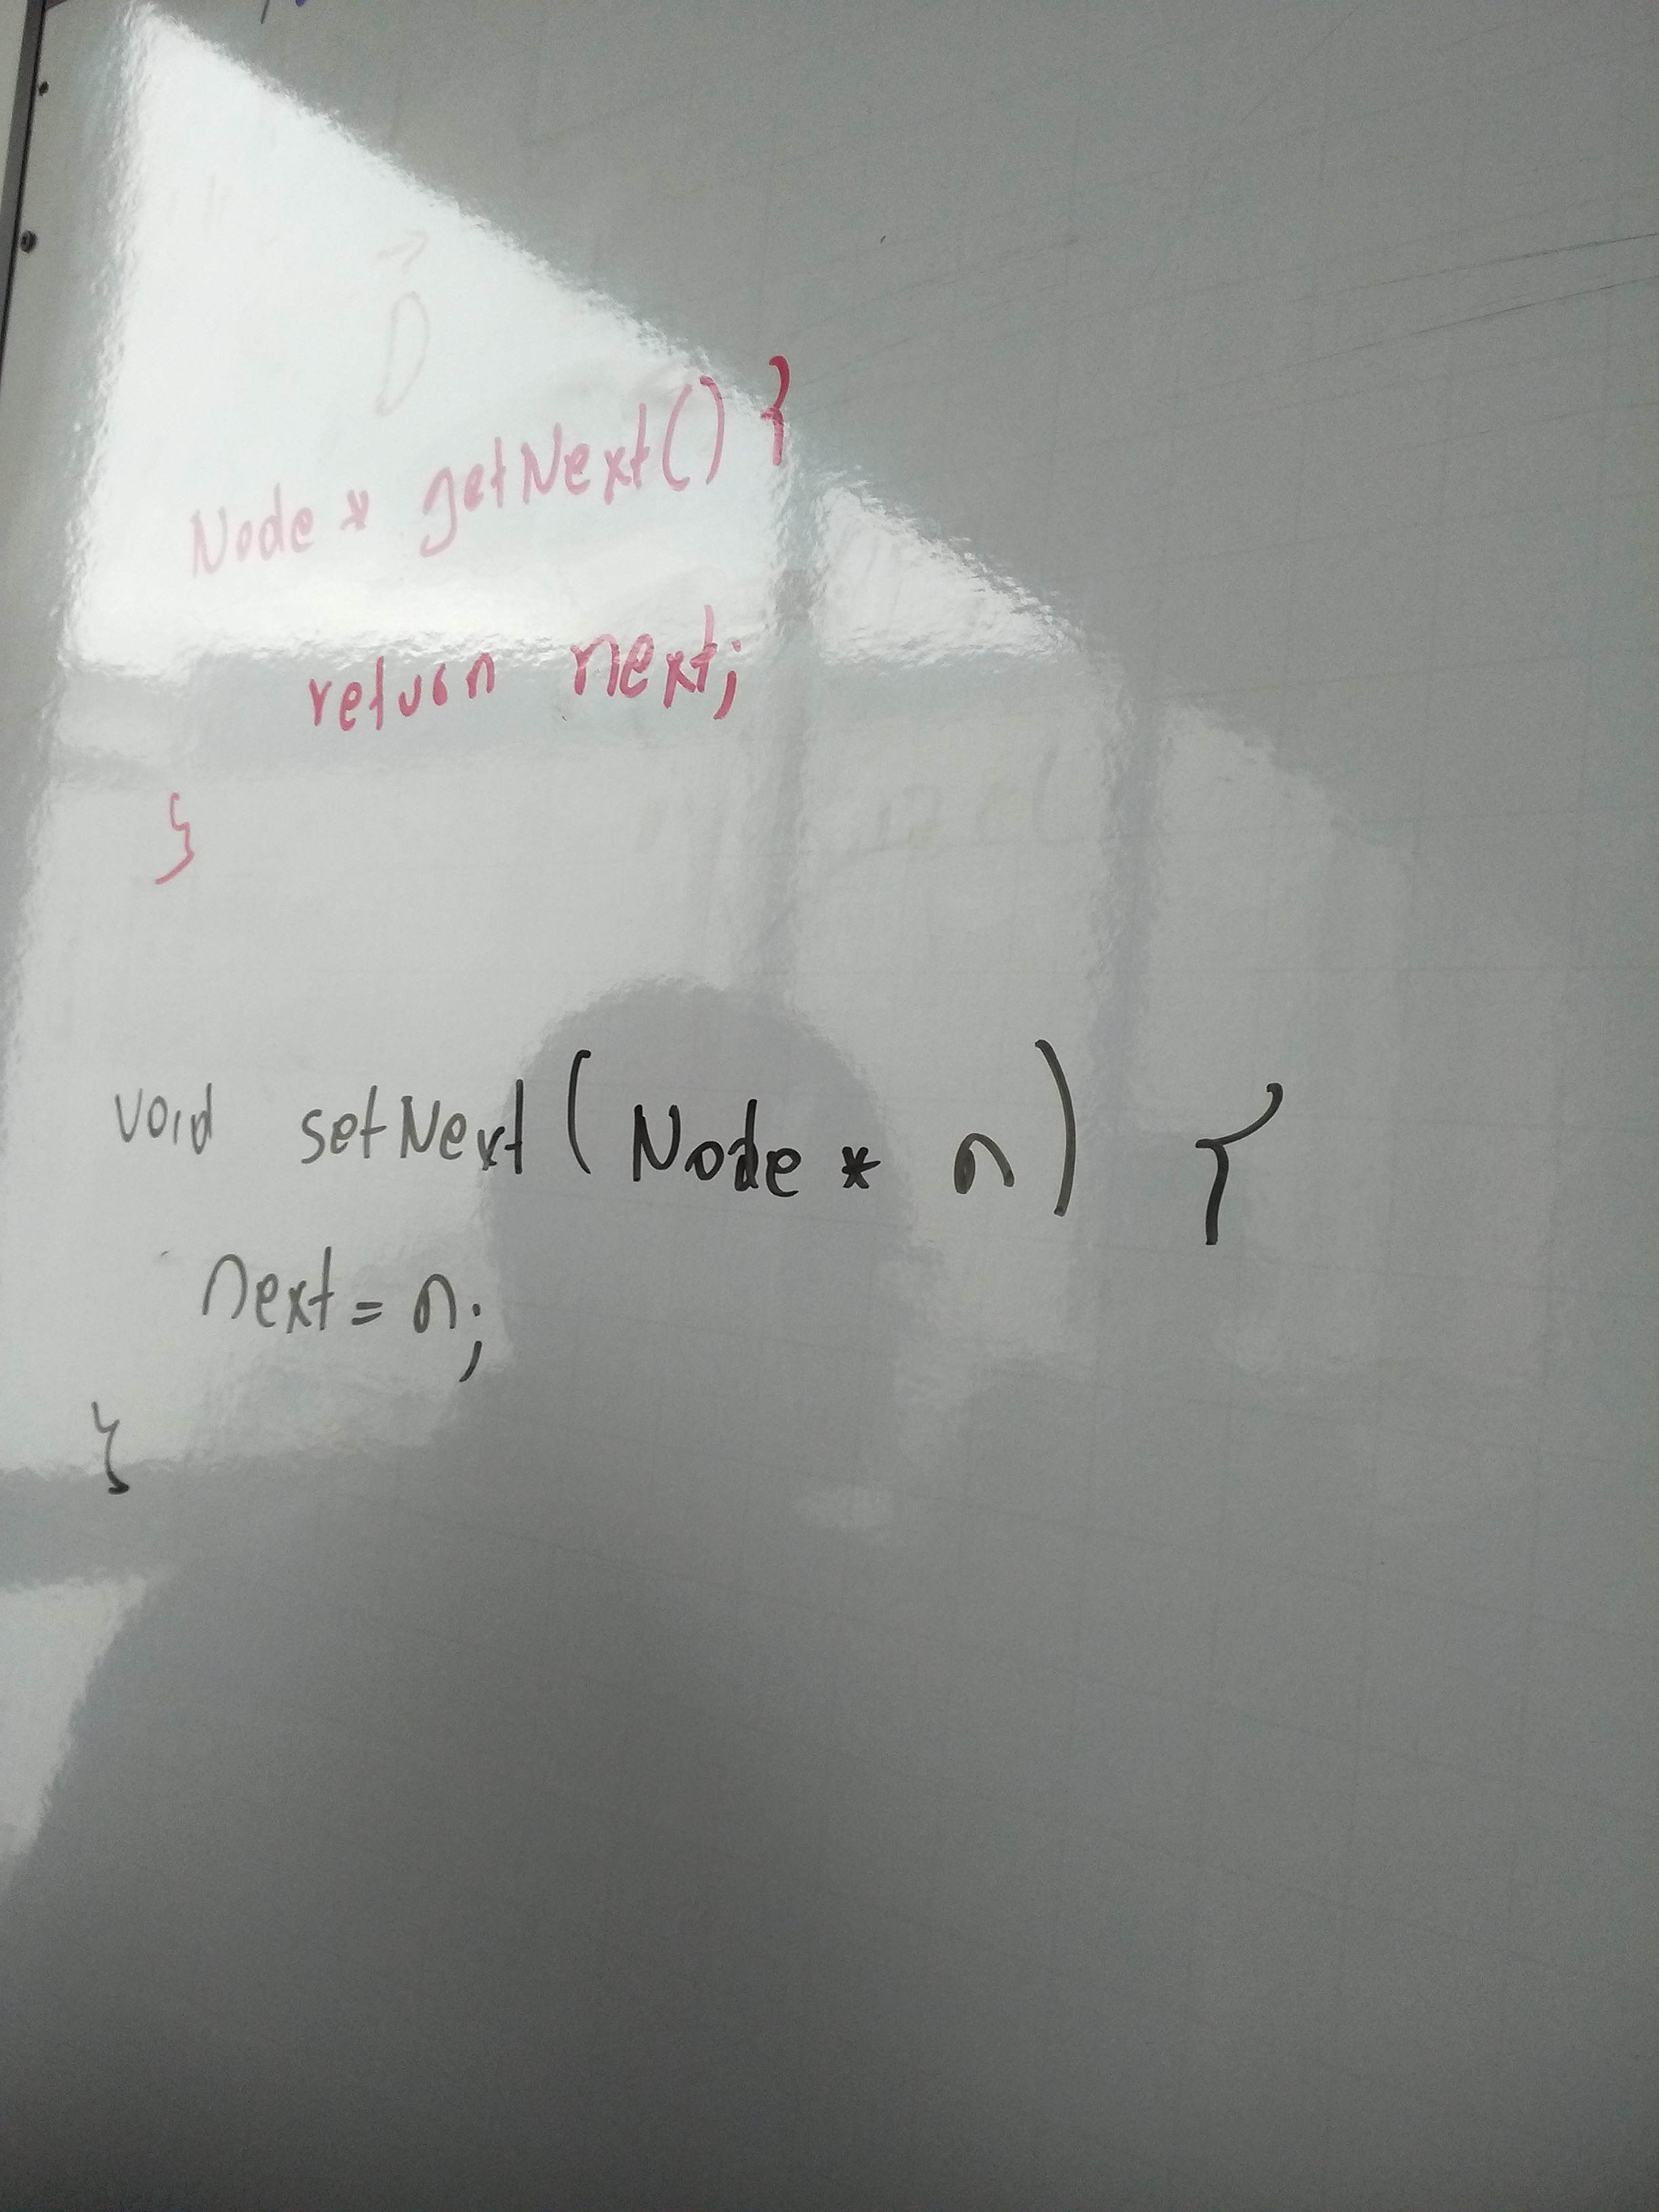 Node * getNext() {
return next;
}
void setNext (Node * n) {
next = n;
}